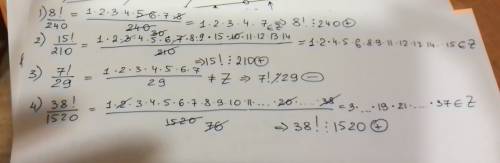 1) 8!/240 = 1·2·3·4·5·6·7·8/240 30 = 1·2·3·4·7 ∈ Z ⇒ 8! ⋮ 240 ⊕
2) 15!/210 = 1·2·3·4·5·6·7·8·9·15·10·11·12·13·14/210 = 1·2·4·5·6·8·9·11·12·13·14·15 ∈ Z
⇒ 15! ⋮ 210 ⊕
3) 7!/29 = 1·2·3·4·5·6·7/29 ≠ Z ⇒ 7! ⋮̸ 29 ⊖
4) 38!/1520 = 1·2·3·4·5·6·7·8·9·10·11·...·20·...·38/1520 76 = 3·...·19·21·...·37 ∈ Z
⇒ 38! ⋮ 1520 ⊕